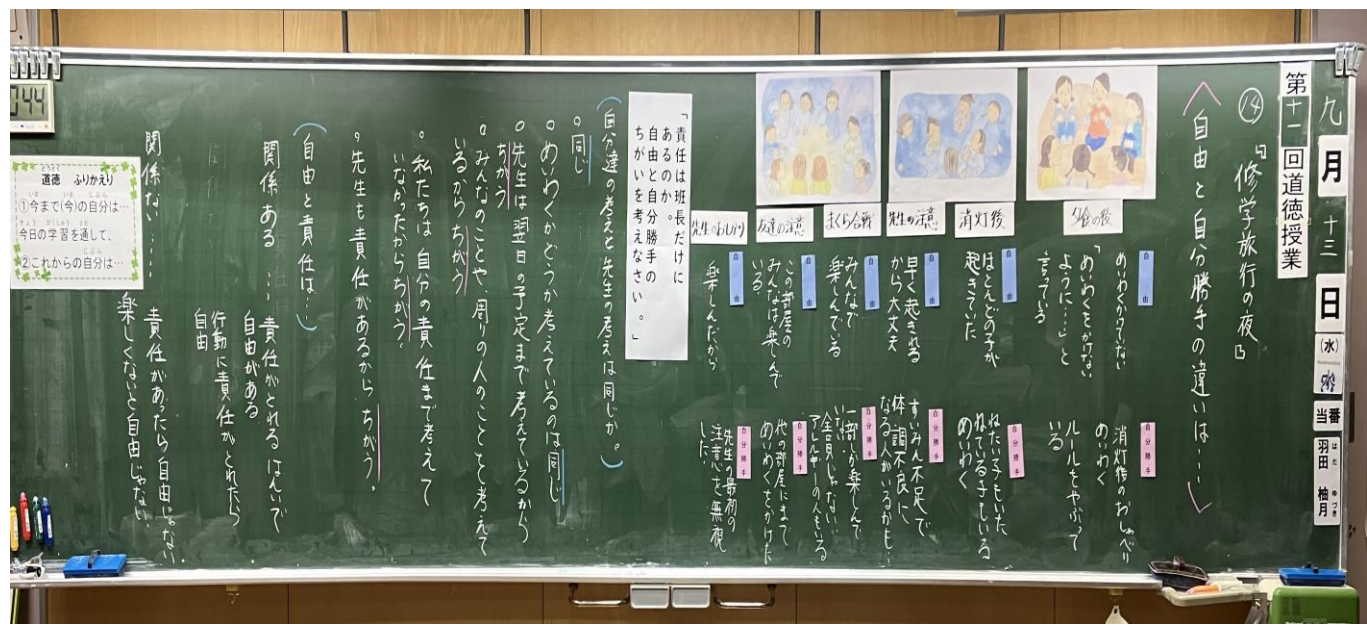 九
月
十三
日
(水)
Wednesday
当番
羽田 柚月
はた ゆづき
第十一回道徳授業
⑭『修学旅行の夜』
自由と自分勝手の違いは……
夕食の後
自由
めいわくかけない
「めいわくをかけない
ように……」と
言っている
自分勝手
消灯後のおしゃべり
めいわく
ルールをやぶって
いる
消灯後
自由
ほとんどの子が
起きていた
自分勝手
ねたい子もいた
ねている子もいる
めいわく
先生の注意
自由
早く起きれる
から大丈夫
自分勝手
すいみん不足で
体調不良に
なる人がいるかも…
まくら合戦
自由
みんなで
楽しんでいる
自分勝手
一部しか楽しんで
いない
全員じゃない
アレルギーの人もいる
友達の注意
自由
この部屋の
みんなは楽しんで
いる
自分勝手
他の部屋にまで
めいわくをかけた
先生のおしかり
自由
楽しんだから
自分勝手
先生の最初の
注意を無視
した
「責任は班長だけに
あるのか。
自由と自分勝手の
ちがいを考えなさい。」
(自分達の考えと先生の考えは同じか。)
。同じ
。めいわくかどうか考えているのは同じ
。先生は翌日の予定まで考えているから
ちがう
。みんなのことや、周りの人のことを考えて
いるからちがう
。私たちは自分の責任まで考えて
いなかったからちがう。
。先生も責任があるからちがう。
(自由と責任は…)
関係ある……
責任がとれるはんいで
自由がある
行動に責任がとれたら
自由
関係ない……
責任があったら自由じゃない。
楽しくないと自由じゃない。
044
道徳 ふりかえり
どうとく
①今まで(今)の自分は…
いま いま じぶん
今日の学習を通して、
きょう がくしゅう とお
②これからの自分は…
じぶん